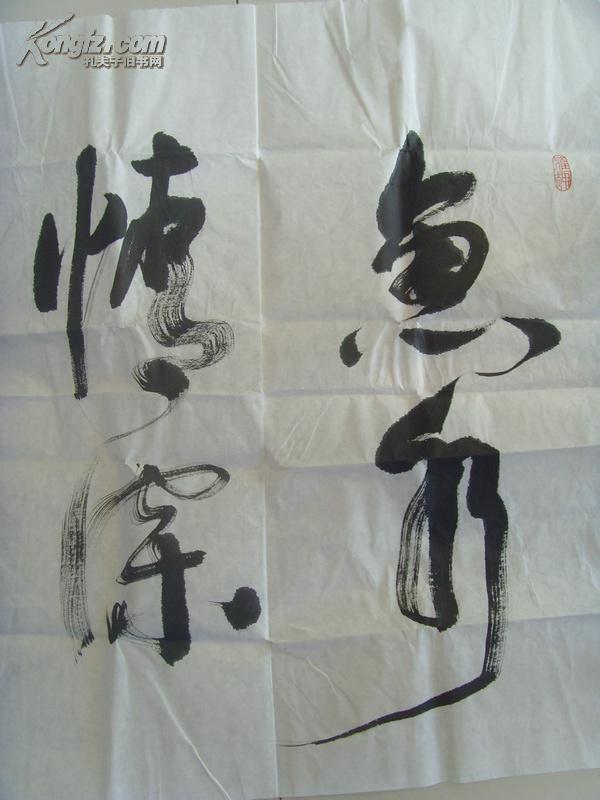 Kongfz.com
孔夫子旧书网
魚水
情深